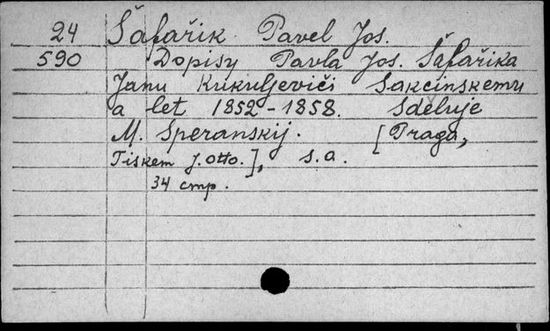 24 Šafařik Pavel Jos.
590 Dopisy Pavla Jos. Šafařika
Janu Kukuljevići Sakcinskemu
a let 1852-1858. Sděluje
M. Speranskij. [Praga,
Tiskem J. Otto.], s.a.
34 стр.